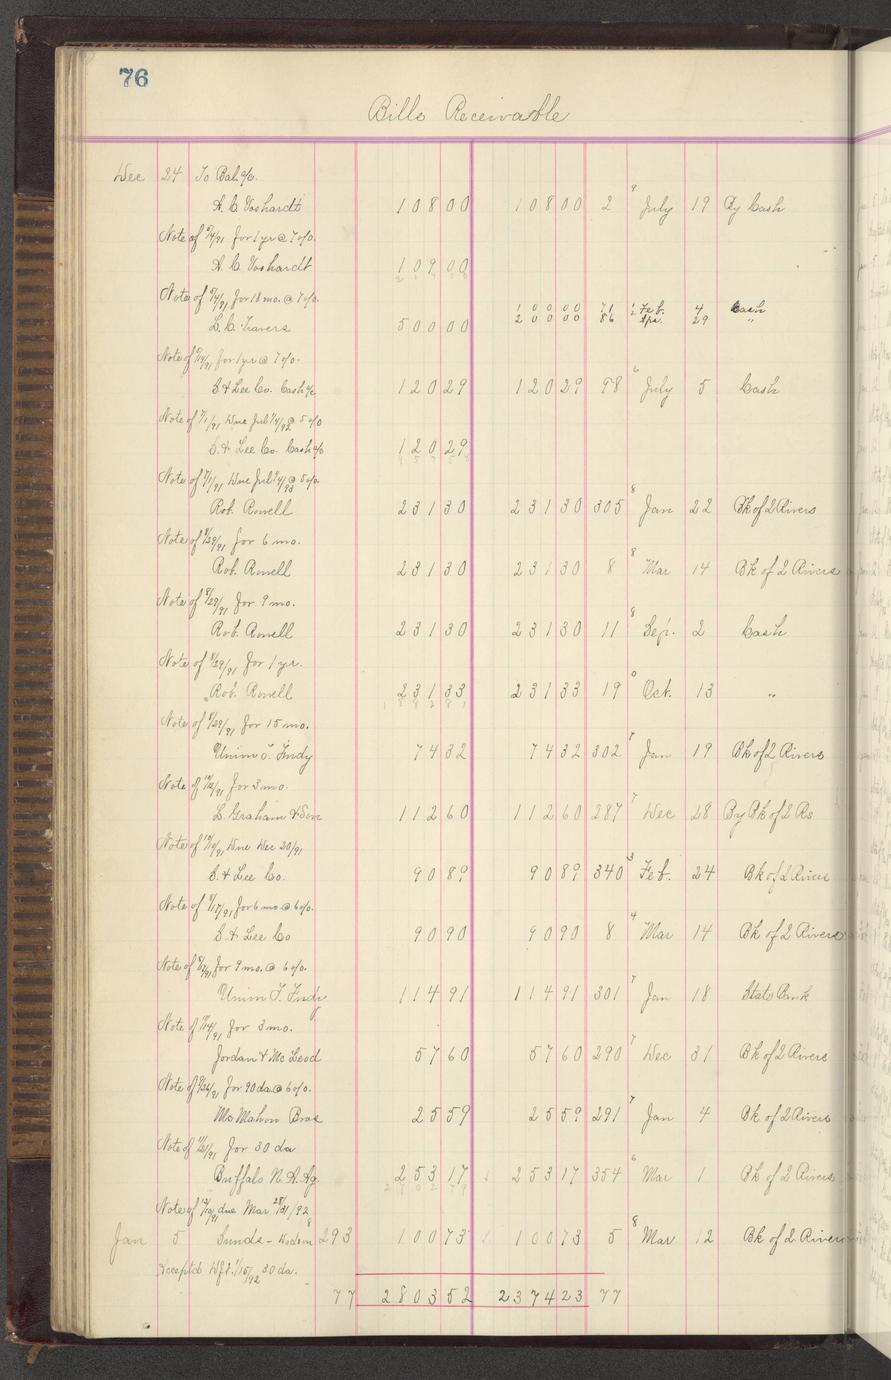 76
Bills Receivable
Dec 24 To Bal a/c.
A. C. Voshardt 108 00 108 00 2 9 July 19 By Cash
Note of 9/4/91 for 1 yr @ 7 o/o.
A. C. Voshardt 109 00
Note of 9/4/91 for 18 mo. @ 7 o/o.
100 00 71 Feb. 4 Cash
L. C. Travers 500 00 200 00 86 Apr. 29 "
Note of for 1 yr @ 7 o/o.
S. & Lee Co. Cash a/c 120 29 120 29 98 6 July 5 Cash
Note of 7/1/91 Due Jul 1/4/92 @ 5 o/o
S. & Lee Co. Cash a/c 120 29
Note of 7/1/91 Due Jul 1/4/93 @ 5 o/o.
Rob. Rowell 231 30 231 30 305 8 Jan 22 Bk of 2 Rivers
Note of 8/29/91 for 6 mo.
Rob. Rowell 231 30 231 30 8 8 Mar 14 Bk of 2 Rivers
Note of 8/29/91 for 9 mo.
Rob. Rowell 231 30 231 30 11 8 Sep. 2 Cash
Note of 8/29/91 for 1 yr.
Rob. Rowell 231 33 231 33 19 Oct. 13 "
Note of 8/29/91 for 15 mo.
Union T. Indy 74 32 74 32 302 7 Jan 19 Bk of 2 Rivers
Note of for 3 mo.
L. Graham & Son 112 60 112 60 287 7 Dec 28 By Bk of 2 Rs
Note of Due Dec 30/91
S. & Lee Co. 90 89 90 89 340 3 Feb. 24 Bk of 2 Rivers
Note of 8/17/91 for 6 mo @ 6 o/o.
S. & Lee Co 90 90 90 90 8 4 Mar 14 Bk of 2 Rivers
Note of for 9 mo. @ 6 o/o.
Union T. Indy 114 91 114 91 301 7 Jan 18 State Bank
Note of for 3 mo.
Jordan & McLeod 57 60 57 60 290 7 Dec 31 Bk of 2 Rivers
Note of 9/26/91 for 90 da @ 6 o/o.
McMahon Bros 25 59 25 59 291 7 Jan 4 Bk of 2 Rivers
Note of for 30 da
Buffalo N. A. Ag. 253 17 253 17 354 6 Mar 1 Bk of 2 Rivers
Note of 12/10/91 due Mar /92
Jan 5 Sunds - 293 100 73 100 73 5 8 Mar 12 Bk of 2 Rivers
Accepted Dft. 1/15/92 30 da.
77 2803 52 2374 23 77